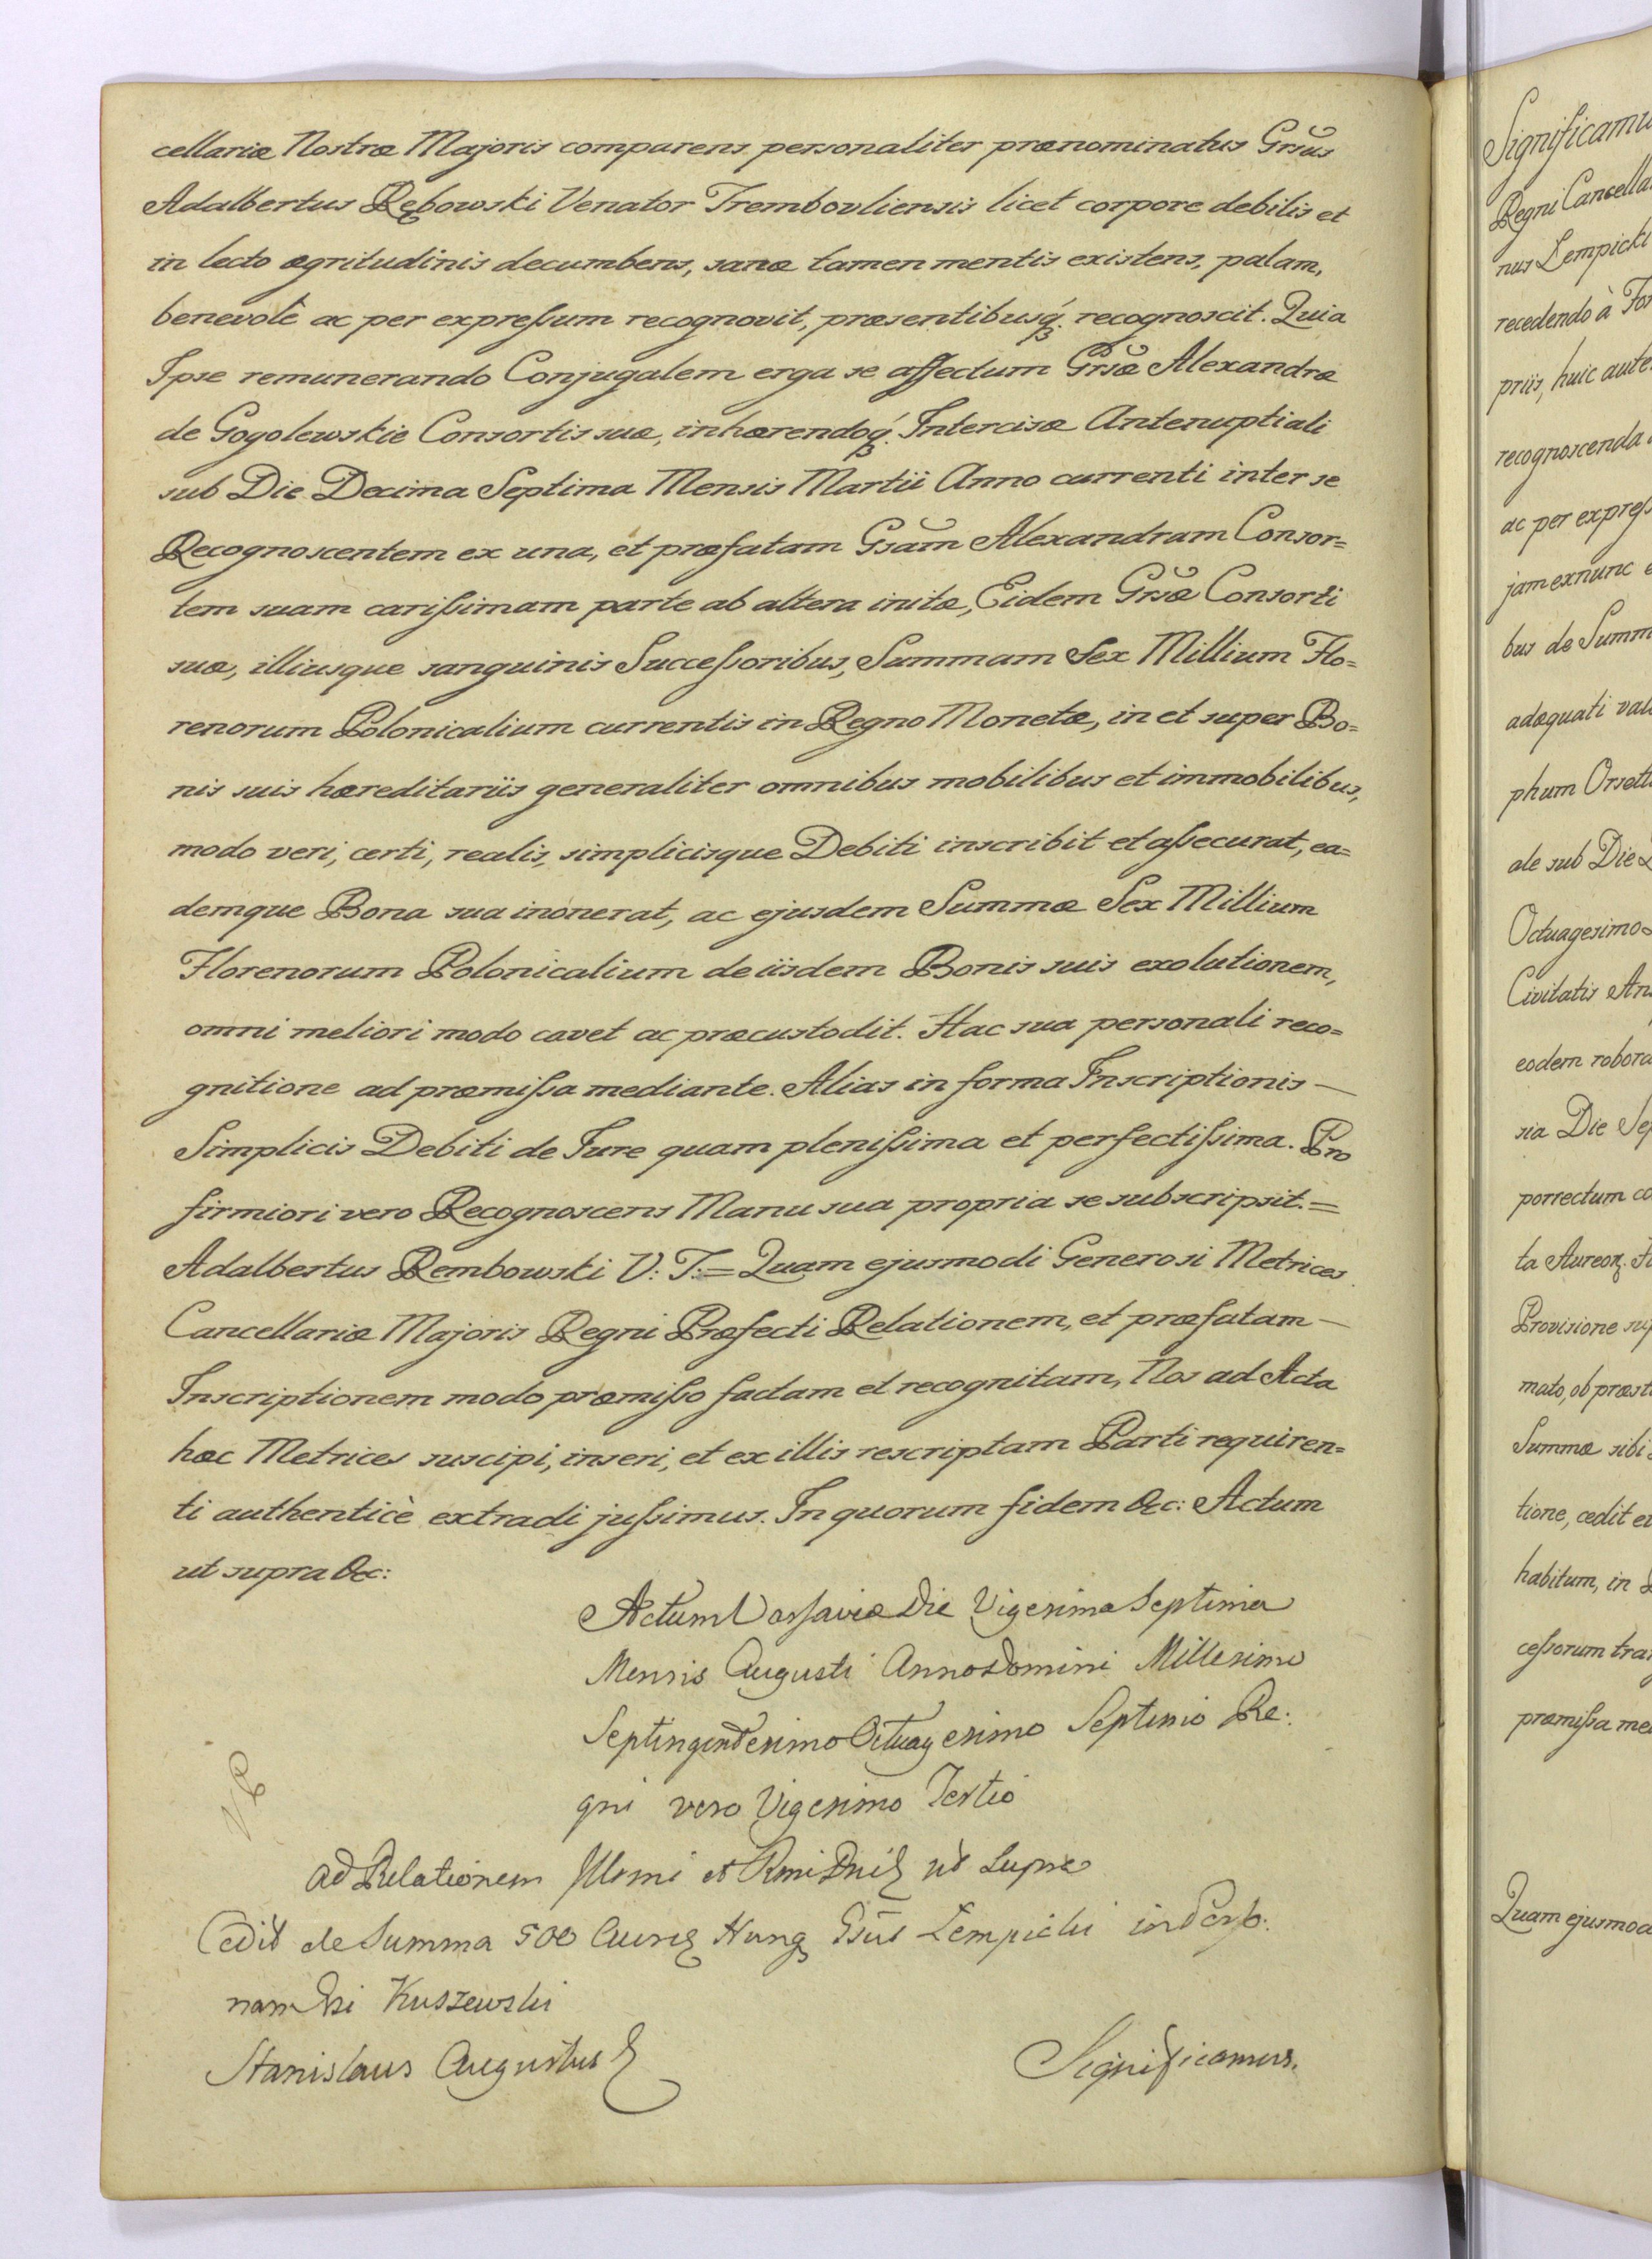 cellariæ Nostræ Majoris comparens personaliter prænominatus Grsus
Adalbertus Rębowski Venator Trembovliensis licet corpore debilis et
in lecto ægritudinis decumbens, sanæ tamen mentis existens, palam,
benevolè ac per expreſsum recognovit, præsentibusq́ꝫ recognoscit. Quia
Ipse remunerando Conjugalem erga se affectum Grsæ Alexandræ
de Gogolewskie Consortis suæ, inhærendoq́ꝫ Intercisæ Antenuptiali
sub Die Decima Septima Mensis Martii Anno currenti inter se
Recognoscentem ex una, et præfatam Gsam Alexandram Consor=
tem suam cariſsimam parte ab altera initæ, Eidem Grsæ Consorti
suæ, illiusque sanguinis Succeſsoribus, Summam Sex Millium Flo=
renorum Polonicalium currentis in Regno Monetæ, in et super Bo=
nis suis hæreditariis generaliter omnibus mobilibus et immobilibus,
modo veri, certi, realis, simplicisque Debiti inscribit et aſsecurat, ea=
demque Bona sua inonerat, ac ejusdem Summæ Sex Millium
Florenorum Polonicalium de iisdem Bonis suis exolutionem,
omni meliori modo cavet ac præcustodit. Hac sua personali reco=
gnitione ad præmiſsa mediante. Alias in forma Inscriptionis —
Simplicis Debiti de Jure quam pleniſsima et perfectiſsima. Pro
firmiori vero Recognoscens Manu sua propria se subscripsit. =
Adalbertus Rembowski V: T: = Quam ejusmodi Generosi Metrices
Cancellariæ Majoris Regni Præfecti Relationem, et præfatam —
Inscriptionem modo præmiſso factam et recognitam, Nos ad Acta
hæc Metrices suscipi, inseri, et ex illis rescriptam Parti requiren=
ti authenticè extradi juſsimus. In quorum fidem &c: Actum
ut supra &c:
Actum Varſaviæ Die Vigesima Septima
Mensis Augusti Anno Domini Millesimo
Septingentesimo Octuagesimo Septimo Re:
gni vero Vigesimo Tertio
Ad Relationem Illsmi et Rmi Dni ut Supra
Cedit de Summa 500 Aureoꝝ Hung Gsus Łempicki in Perſo:
nam Gsi Kuszewski
Stanislaus Augustus
Significamus.
Significamu
Regni Cancella
nus Łempicki
recedendo à For
priis, huic aute
recognoscenda
ac per expreſs
jam exnunc e
bus de Summ
adæquati val
phum Orsett
ale sub Die
Octuagesimo
Civitatis An
eodem robora
sia Die Sep
porrectum co
ta Aureoꝝ. H
Provisione sup
mato, ob præst
Summæ sibi
tione, cedit et
habitum, in
ceſsorum tran
præmiſsa me
Quam ejusmod